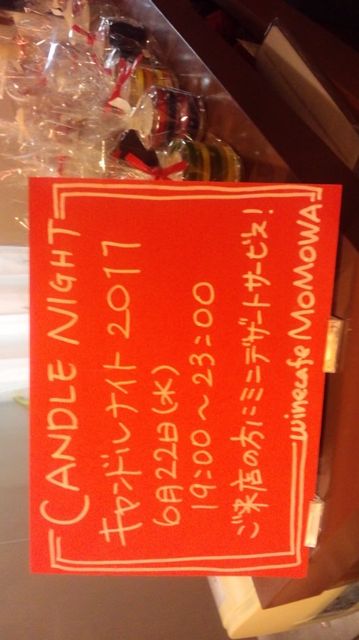 CANDLE NIGHT
キャンドルナイト 2011
6月22日(水)
19:00～23:00
ご来店の方にミニデザートサービス!
winecafe MOMOWA